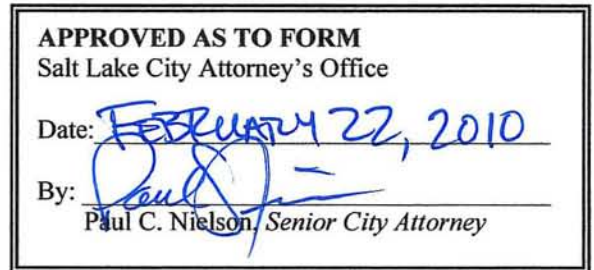 APPROVED AS TO FORM
Salt Lake City Attorney's Office
Date: FEBRUARY 22, 2010
By:
Paul C. Nielson, Senior City Attorney